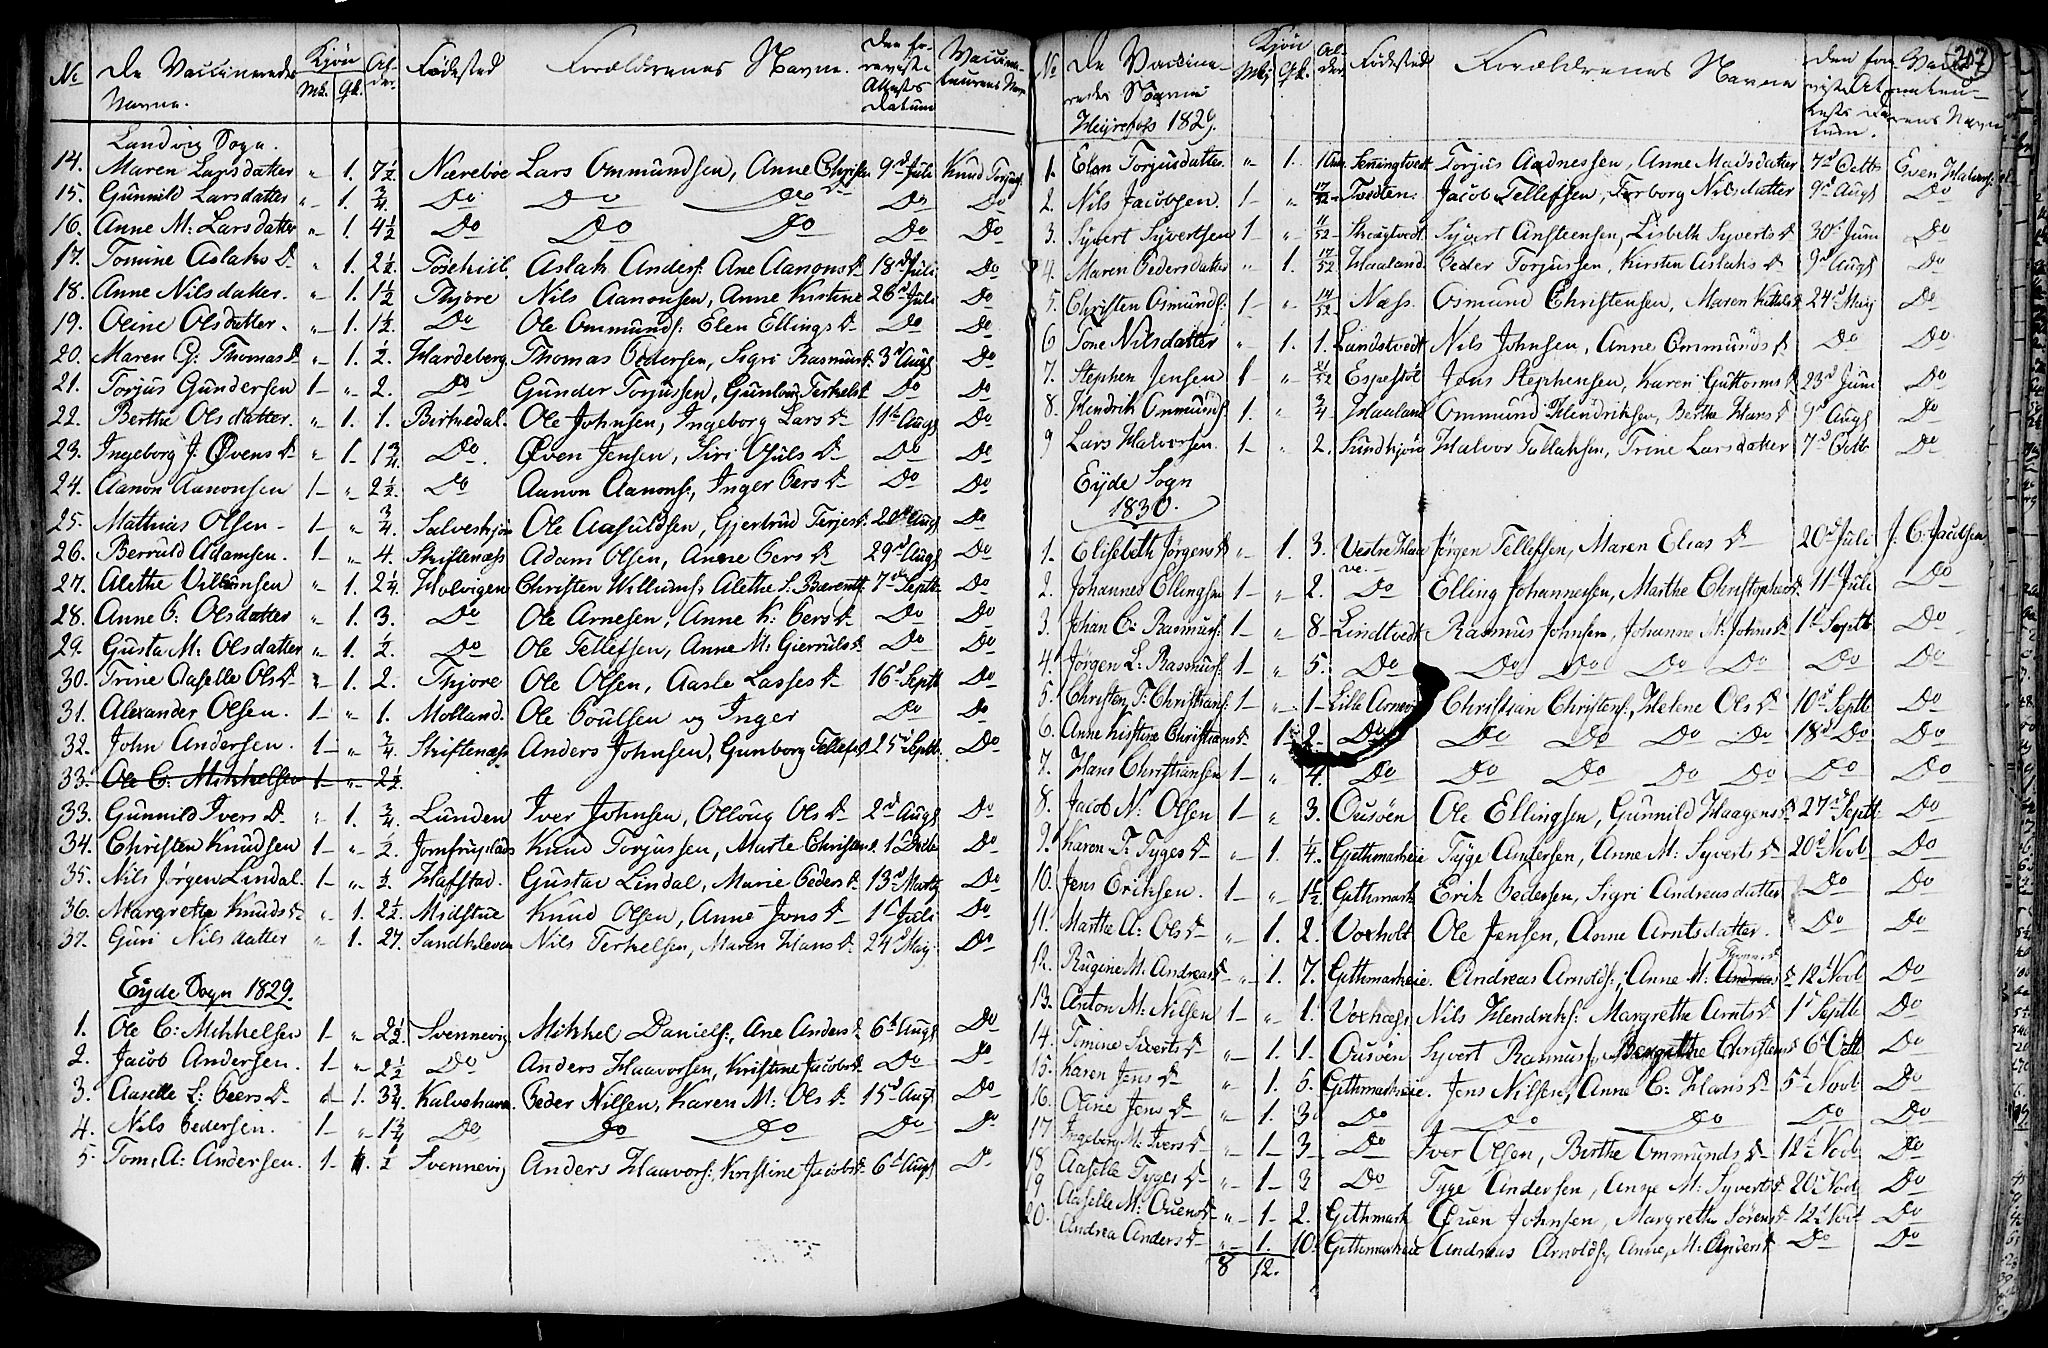 № De Vaccineredes Navne. Kjön Mk. Qk. Alder. Födested Forældrenes Navne. Den foreviste Attestes Datum Vaccinateurens Navn
Landvig Sogn.
14. Maren Larsdatter „ 1. 7½. Næreböe Lars Ommundsen, Anne Christens D 9d Juli Knud Torjus:
15. Gunnild Larsdatter „ 1. ¾. Do Do Do Do Do
16. Anne M: Larsdatter „ 1. 4½ Do Do Do Do Do
17. Tomine Aslaks D „ 1. 2½. Aslak Anders: Ane Aanons D 18d Juli Do
18. Anne Nilsdatter. „ 1. 1½ Thjore Nils Aanonsen, Anne Kirstine 26d Juli Do
19. Oline Olsdatter. „ 1. 1½. Do Ole Ommunds: Elen Ellings D Do Do
20. Maren G: Thomas D „ 1. ½. Hardeberg Thomas Pedersen, Sigri Rasmus D. 3d Augs Do
21. Torjus Gundersen 1 „ 2. Do Gunder Torjussen, Gunlou Terkels D Do Do
22. Berthe Olsdatter. „ 1. 1. Birkedal. Ole Johnsen, Ingeborg Lars D 11t Augs Do
23. Ingeborg J. Øvens D „ 1 1¾ Do. Øven Jensen, Siri Do Do
24. Aanon Aanonsen 1 „ 2½. Do Aanon Aanons:, Inger Pers D Do Do
25. Mathias Olsen 1 „ ¾. Salveskjön Ole Aasuldsen, Gjertrud Terjes D. 20d Augs Do
26. Berruld Adamsen. 1 „ 4. Skriftenæss Adam Olsen, Anne Pers D 29d Augs Do
27. Alethe Villumsen „ 1. 2¼. Holvigen Christen Willums: Alethe S. Barentz 7d Septb Do
28. Anne P: Olsdatter „ 1. 3. Do Ole Arnesen, Anne K. Pers D Do Do
29. Gusta M: Olsdatter „ 1. ½. Do Ole Tellefsen, Anne M: Gierruls D Do Do
30. Trine Aaselle Ols D „ 1. 2. Thjore Ole Olsen, Aasle Lasses D 16d Septb Do
31. Alexander Olsen. 1 „ 1. Molland. Ole Poulsen og Inger Do Do
32. John Andersen. 1 „ ¾. Skriftenæss Anders Johnsen, Gunborg Tellefs D. 25d Septb. Do
33. Ole C: Mikkelsen 1 „ 2½
33. Gunnild Ivers D „ 1. ¾. Lunden Iver Johnsen, Olloug Ols D 2d Augs Do
34. Christen Knudsen 1 „ ½. Jomfruplads Knud Torjussen, Marte Christens. Do
35. Nils Jörgen Lindal. 1 „ ½. Haffstad. Gustav Lindal, Marie Peders D 13d Martz Do
36. Margrethe Knuds D „ 1. 2½. Midstue Knud Olsen, Anne Jons D 1d Juli Do
37. Guri Nilsdatter „ 1. 27. Sandkleven Nils Terkelsen, Maren Hans D 24d Maij Do
Eyde Sogn 1829.
1. Ole C: Mikkelsen 1 „ 2½ Svennevig Mikkel Daniels:, Ane Anders D 6d Augs Do
2. Jacob Andersen. 1 „ 2½ Do Anders Haavorsen, Kristine Jacobs D. Do Do
3. Aaselle L: Peers D „ 1. 3¾ Kalvehave. Peder Nilsen, Karen M: Ols D. 15d Augs Do
4. Nils Pedersen. 1 „ 1¾ Do Do Do Do Do
5 Tom. A: Andersen. 1 „ ½ Svennevig Anders Haavors:, Kristine Jacobs D. 6d Augs D
207
№ De Vaccineredes Navne Kjön Mk Qk. Alder. Födested Forældrenes Navne Den foreviste Attestes Datum. Vaccinateurens Navn
Heyrefoss 1829.
1. Elen Torjusdatter. „ 1. Torjus Aadnessen, Anne Madsdatter 7d Octb Even Halvors:
2. Nils Jacobsen. 1 „ 17/52 Tveden. Jacob Tellefsen, Torborg Nilsdatter 9d Augs Do
3. Syvert Syvertsen 1 „ 11/52 Skougtvedt Syvert Ansteensen, Lisbeth Syverts D 30d Juni Do
4. Maren Pedersdatter „ 1. 17/52 Haaland Peder Torjussen, Kirsten Aslaks D 9d Augs Do
5. Christen Osmunds: 1 „ 14/52 Næss. Osmund Christensen, Maren Kittels D 24d Maij Do
6 Tone Nilsdatter „ 1. 1. Lundstvedt Nils Johnsen, Anne Ommunds D Do Do
7. Stephen Jensen 1 „ 21/52 Espestöl Jens Stephensen, Karen Guttorms D 23d Juni Do
8. Hendrik Ommunds: 1. „ ¾ Haaland Ommund Hendriksen, Berthe Hans D 9d Augs Do
9 Lars Halvorsen. 1 „ 2. Sundkjön Halvor Tallaksen, Trine Larsdatter 7d Octb Do
Eyde Sogn
1830.
1. Elisebeth Jörgens D „ 1. 3. Vestre Have. Jörgen Tellefsen, Maren Elias D 20d Juli J. C. Jacobsen
2. Johannes Ellingsen 1 „ 2. Do Elling Johannessen, Marthe Christophers D 11t Juli Do
3. Johan C: Rasmus: 1 „ 8 Lindtvedt Rasmus Johnsen, Johanne M: Johns D 1d Septb Do
4. Jörgen L: Rasmus: 1 „ 5. Do Do Do Do Do Do Do
5. Christen T. Christians: 1 „ 1 Lille Arnevig Christian Christens:, Helene Ols D 10d Septb Do
6. Anne Kistine Christians D 1 2. Do Do Do Do Do 18d Do Do
7. Hans Christiansen 1 „ 4. Do Do Do Do Do Do Do
8. Jacob N: Olsen 1 „ 3. Ousöen Ole Ellingsen, Gunnild Haagens D 27d Septb. Do
9. Karen T. Tyges D „ 1. ¼. Gethmarheie Tyge Andersen, Anne M: Syverts D 20d Novb Do
10. Jens Eriksen. 1 „ 1½. Gethmark Erik Pedersen, Sigri Andreasdatter Do Do
11. Marthe A: Ols D „ 1. 2. Voxholt Ole Jensen, Anne Arntsdatter. Do Do
12. Rugine M. Andreas D „ 1. 7. Gethmarheie. Andreas Arnolds:, Anne M: Andreas D 12d Novb Do
13. Anton M: Nilsen 1 „ 1. Voxnæss Nils Hendriks: Margrethe Arnts D 1d Septb Do
14. Tomine Siverts D „ 1. 1. Ousöen Syvert Rasmus:, Bergithe Christens D 6d Octb Do
15. Karen Jens D „ 1. 5. Gethmarheie. Jens Nilsen, Anne C: Hans D 5d Novb Do
16. Oline Jens D „ 1. 3. Do Do Do Do Do
17 Ingeborg M. Ivers D „ 1 3 Do Iver Olsen, Birthe Ommunds D 12d Novb Do
18. Aaselle Tyges D „ 1 3 Do Tyge Andersen, Anne M. Syverts D. 20d Novb Do
19 Aaselle M: Ouens D „ 1 2. Gethmark Ouen Johnsen, Margrethe Sörens D 12d Novb Do
20. Andrea Anders D „ 1. 10. Gethmarheie Andreas Arnolds:, Anne M: Anders D Do Do
8 12.